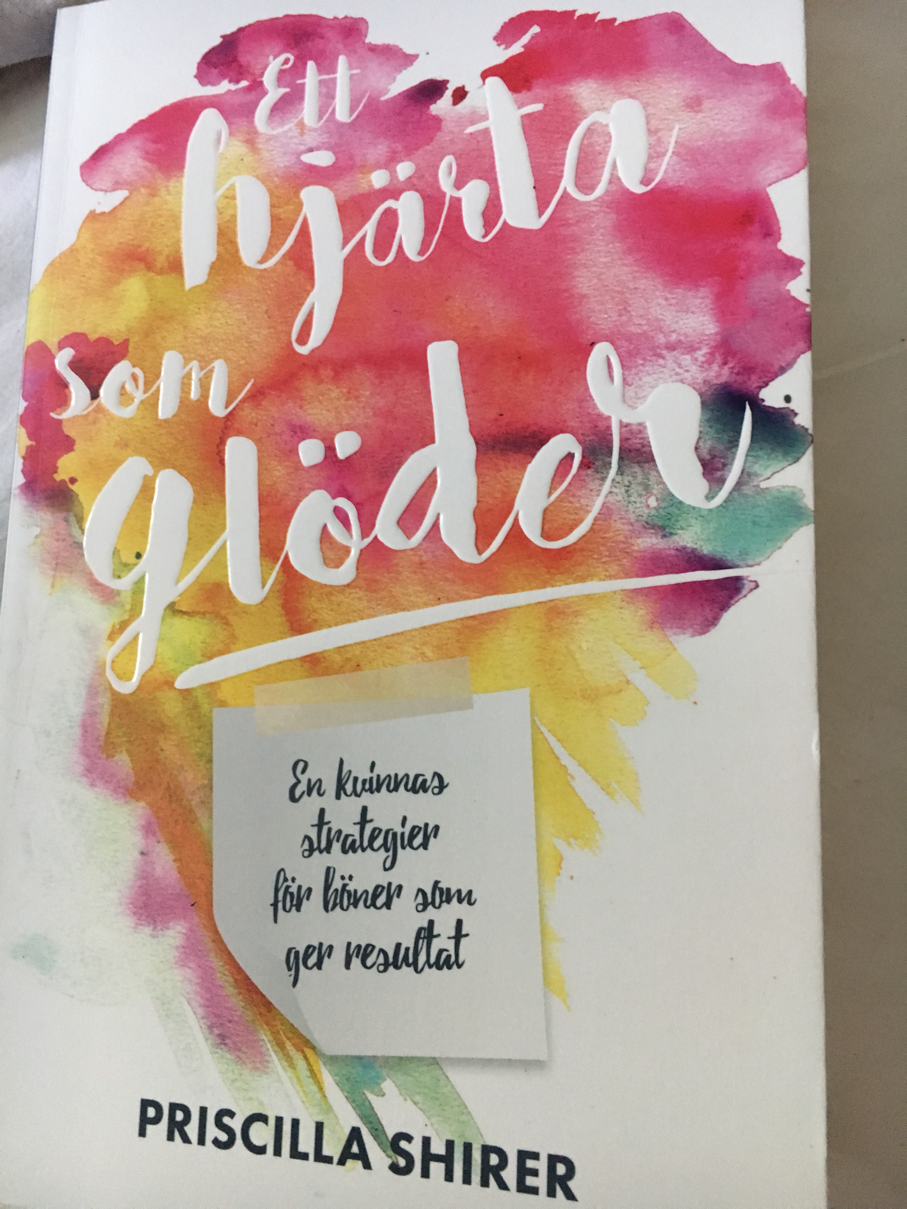 Ett
hjärta
som
glöder
En kvinnas
strategier
för böner som
ger resultat
PRISCILLA SHIRER